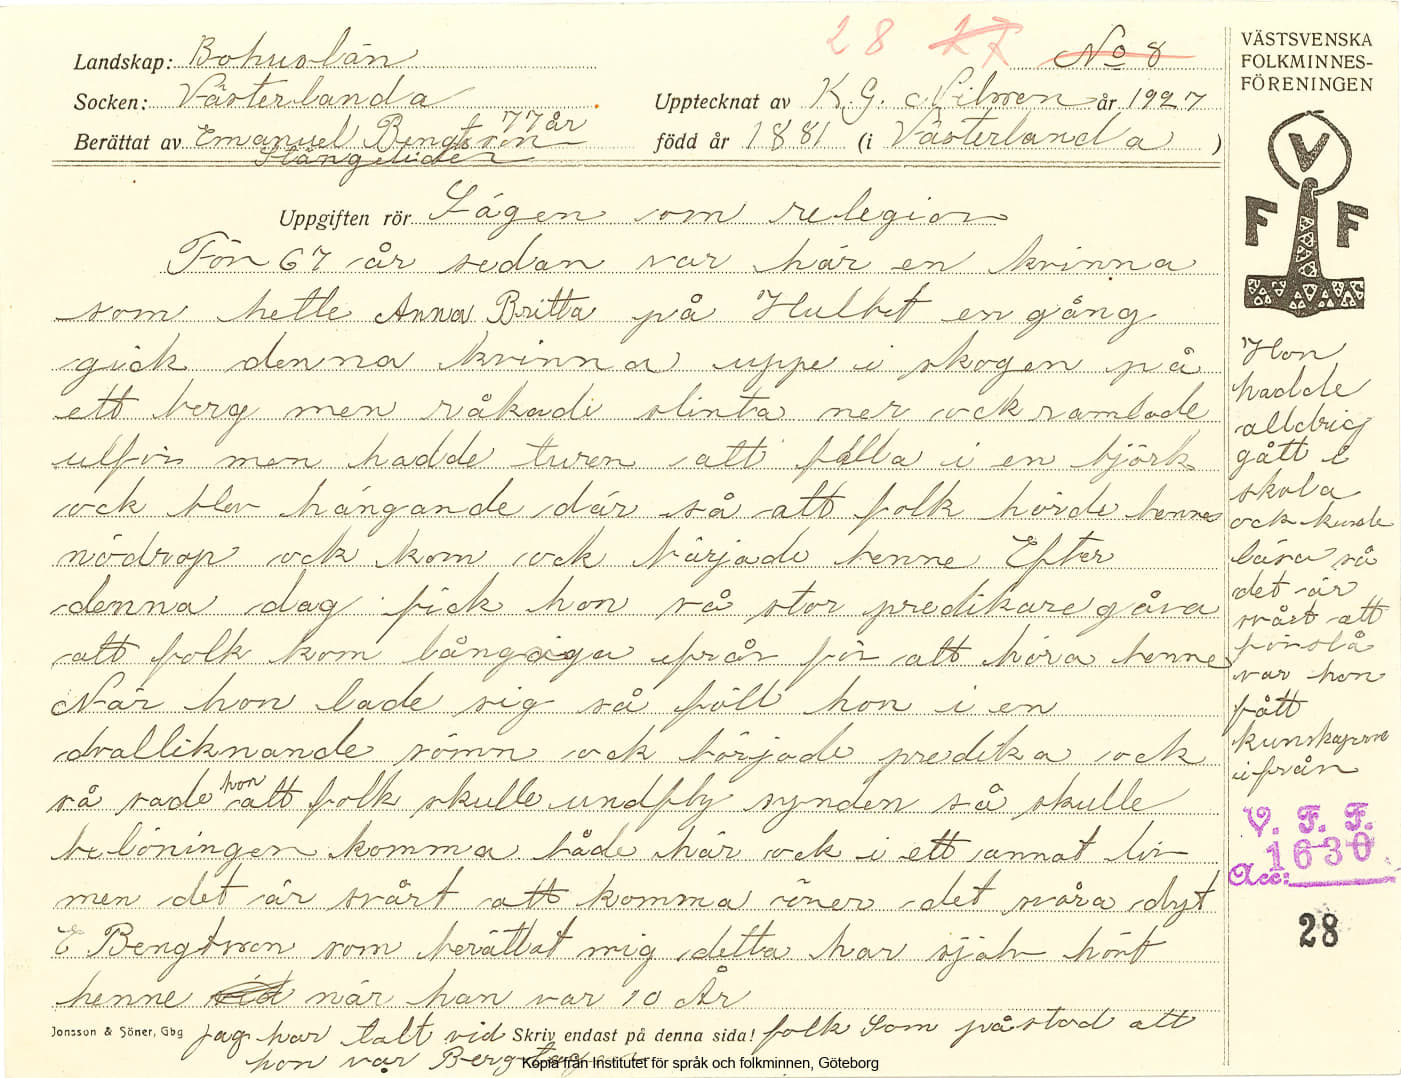 28 27 No 8
Landskap: Bohuslän
Socken: Västerlanda
Upptecknat av K.G. Nilsson år 1927
Berättat av Emanuel Bengtson 77 år
Stängeliden
född år 1881 (i Västerlanda )
Uppgiften rör Sägen som relegion
För 67 år sedan var här en kvinna
som hette Anna Britta på Hultet en gång
gick denna kvinna uppe i skogen på
ett berg men råkade slinta ner ock ramlade
utför men hadde turen att falla i en björk
ock blev hängande där så att folk hörde hennes
nödrop ock kom ock bärjade henne Efter
denna dag fick hon så stor predikare gåva
att folk kom långväga ifrån för att höra henne
När hon lade sig så föll hon i en
dvalliknande sömn ock började predika ock
så sade hon att folk skulle undfly synden så skulle
belöningen komma både här ock i ett annat liv
men det är svårt att komma över det svåra dyt
E Bengtsson som berättat mig detta har sjelv hört
henne när han var 10 År
Jonsson & Söner, Gbg
Skriv endast på denna sida!
jag har talt vid folk som påstod att
hon var Bergtagen
Kopia från Institutet för språk och folkminnen, Göteborg
VÄSTSVENSKA
FOLKMINNES-
FÖRENINGEN
V
F F
Hon
hadde
alldrig
gått i
skola
ock kunde
läsa så
det är
svårt att
förstå
var hon
fått
kunskaperna
ifrån
V. F. F.
Acc: 1630
28